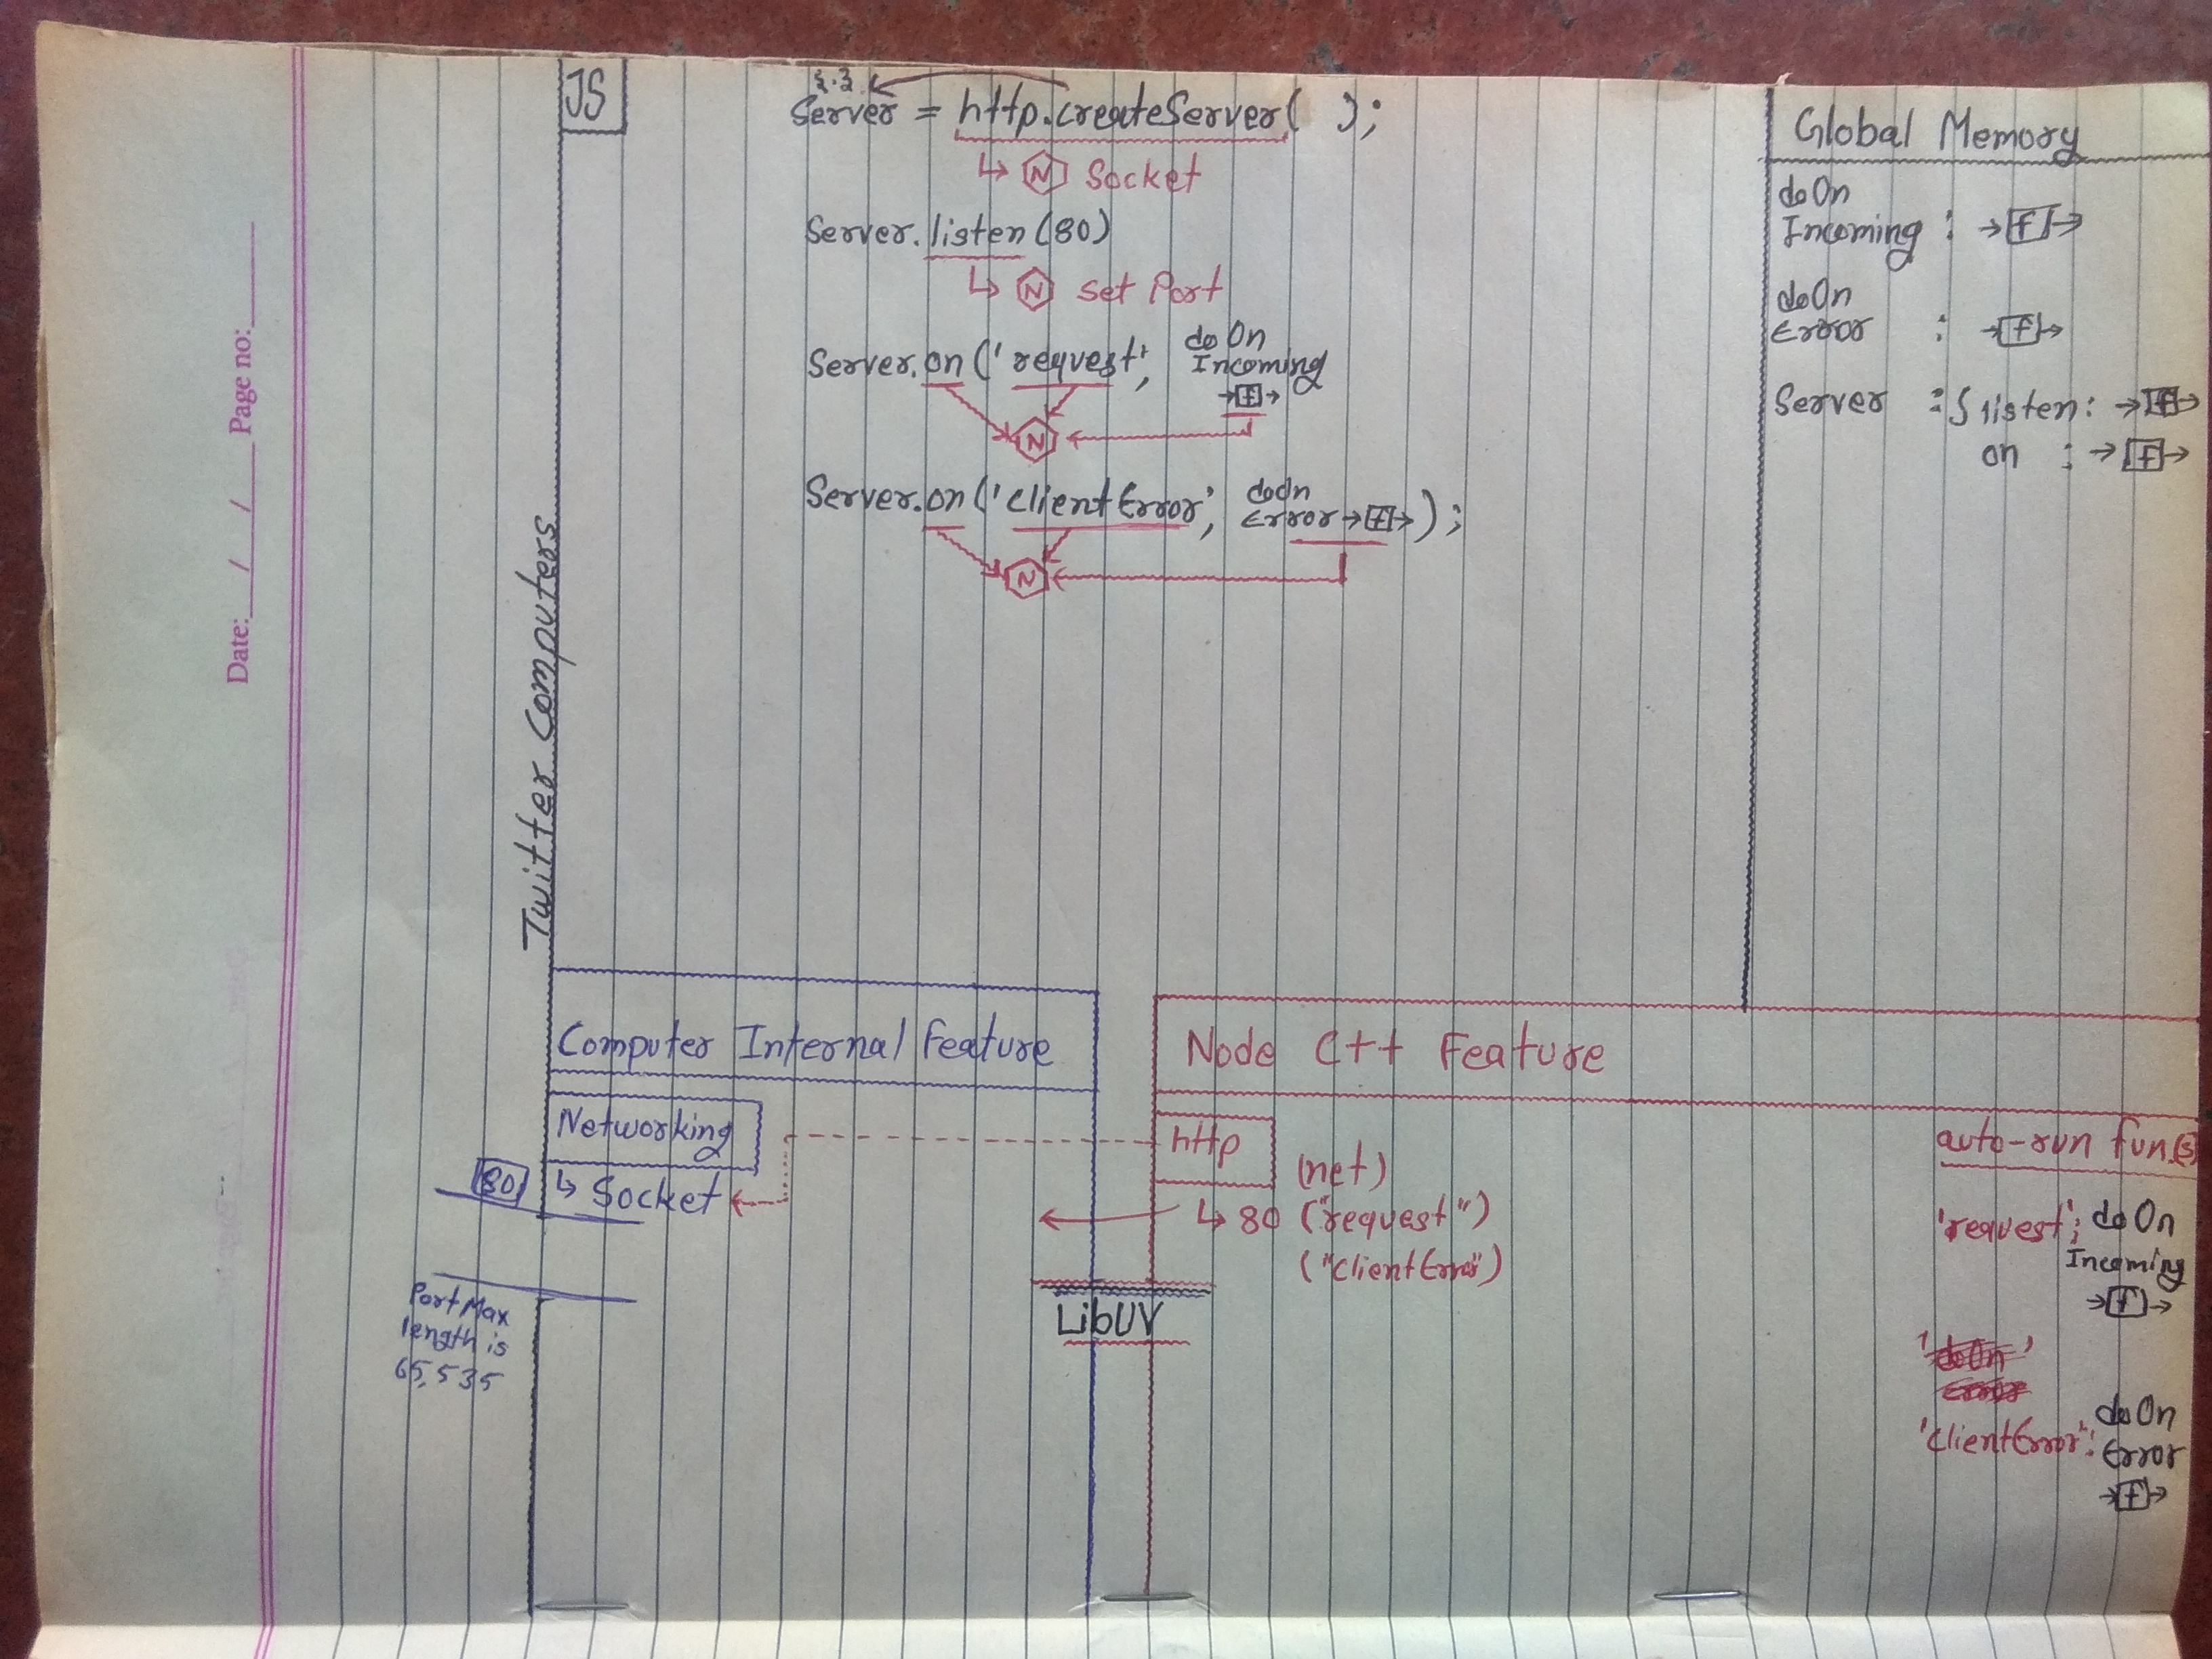 JS
{.}
Server = http.createServer( );
↳ N Socket
Server.listen(80)
↳ N set Port
Server.on('request', doOn
Incoming
→[f]→
N
Server.on('clientError', doOn
Error→[f]→);
N
Global Memory
doOn
Incoming : →[f]→
doOn
Error : →[f]→
Server : { listen: →[f]→
on : →[f]→
Date: / / / Page no:
Twitter Computers
Computer Internal Feature
Networking
80
↳ Socket
Port Max
length is
65,535
Node C++ Feature
http
(net)
↳ 80 ("request")
("clientError")
LibUV
auto-run fun.(s)
'request'; doOn
Incoming
→[f]→
'doOn'
Error
'clientError': doOn
Error
→[f]→